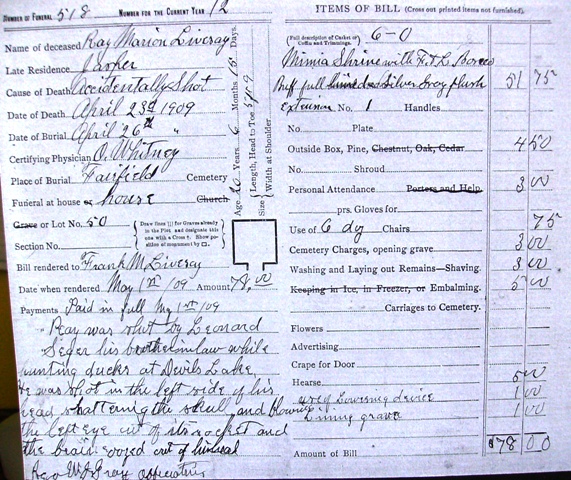 NUMBER OF FUNERAL 518 NUMBER FOR THE CURRENT YEAR 12
Name of deceased Ray Marion Liveray
Late Residence Jasper
Cause of Death Accidentally Shot
Date of Death April 23rd 1909
Date of Burial April 26th "
Certifying Physician O. Whitney
Place of Burial Fairfield Cemetery
Funeral at house or house Church
Grave or Lot No. 50
Draw lines for Graves already in the Plot and designate this one with a Cross †. Show position of monument by □.
Section No.
Bill rendered to Frank M. Liveray
Date when rendered May 1st /09 Amount 78.00
Payments Paid in full My 1st /09
Ray was shot by Leonard
Seger his brotherinlaw while
hunting ducks at Devils Lake
He was shot in the left side of his
head shattering the skull and blowing
the left eye out of its socket and
the brain oozed out of his head
Rev W J Gray Officiating
Age 20 Years 6 Months 15 Days.
Size Length, Head to Toe 5 ft 9
Width at Shoulder
ITEMS OF BILL (Cross out printed items not furnished).
(Full description of Casket or Coffin and Trimmings. 6-0
Shrine with
full lined Silver Gray plush 51 75
Extension No. 1 Handles
No. Plate
Outside Box, Pine, Chestnut, Oak, Cedar 4 50
No. Shroud
Personal Attendance Porters and Help 3 00
prs. Gloves for
Use of 6 dz Chairs 75
Cemetery Charges, opening grave 3 00
Washing and Laying out Remains—Shaving. 3 00
Keeping in Ice, in Freezer, or Embalming. 5 00
Carriages to Cemetery.
Flowers
Advertising
Crape for Door
Hearse 5 00
use of Lowering device 1 00
Lining grave 1 00
Amount of Bill $78 00